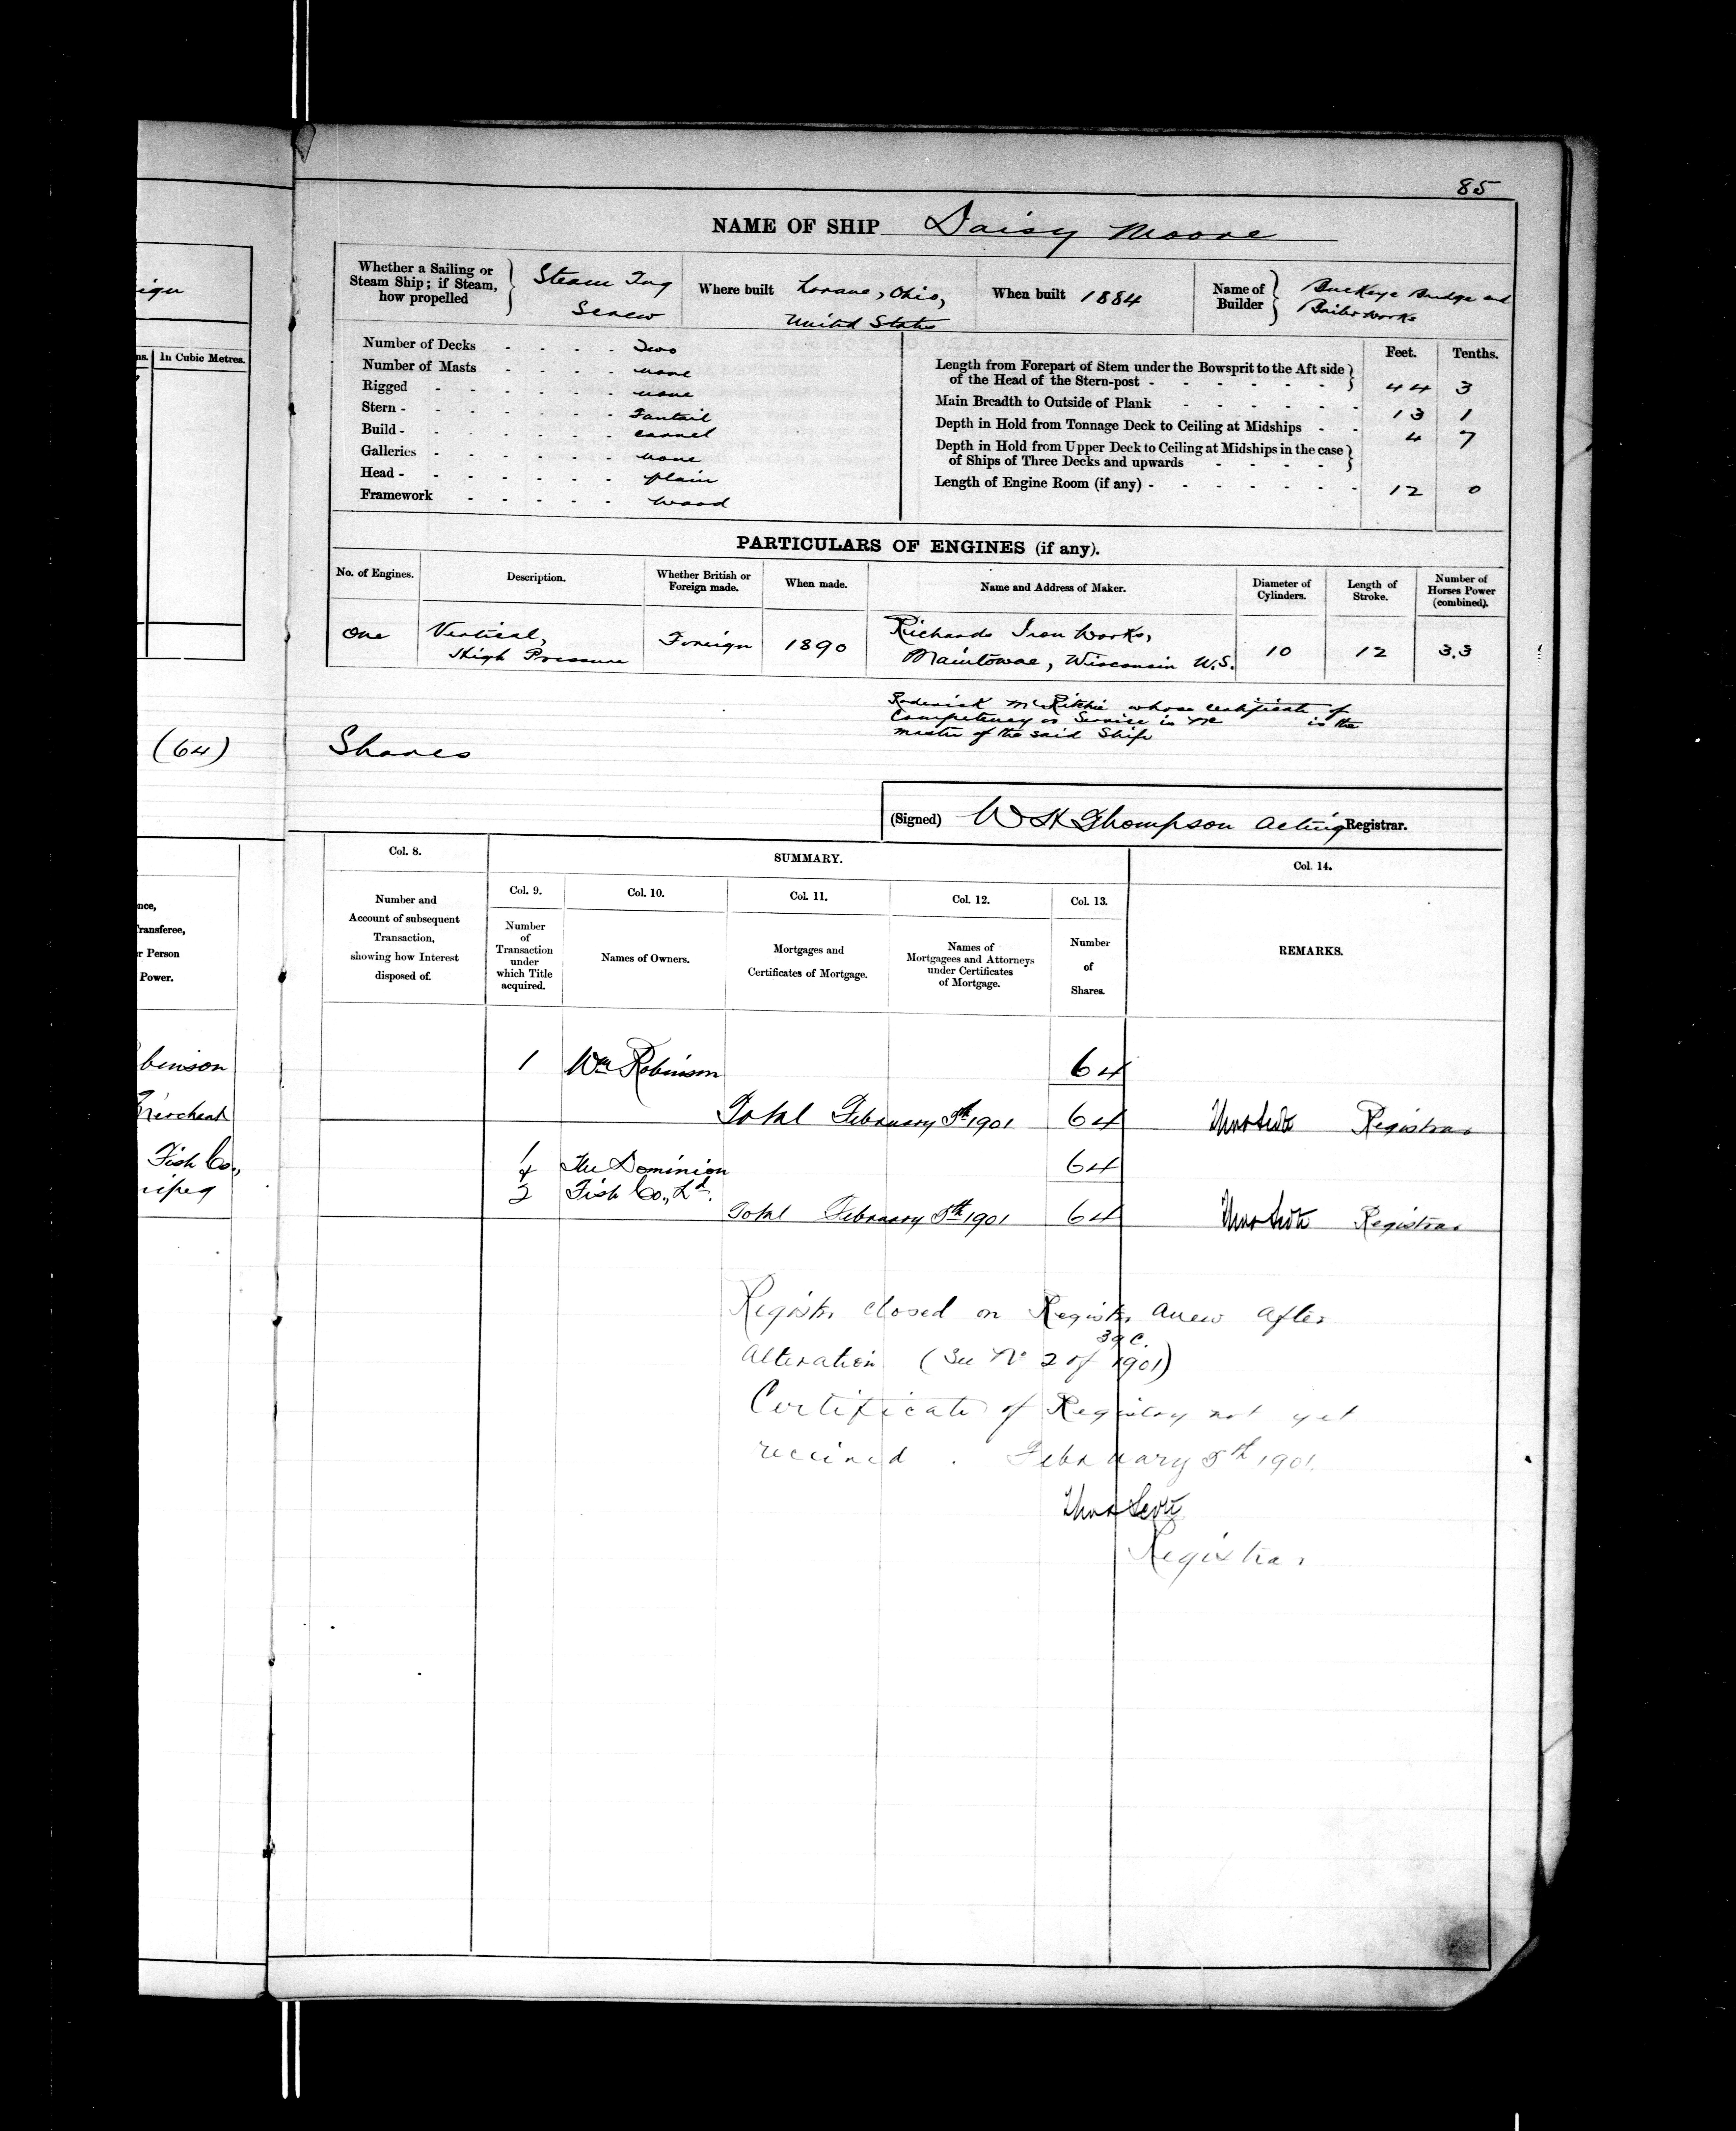 85
NAME OF SHIP Daisy Moore
Whether a Sailing or
Steam Ship; if Steam,
how propelled
Steam Tug
Screw
Where built Lorane, Ohio,
United States
When built 1884
Name of
Builder
Buckeye Bridge and
Boiler works
Number of Decks - - - - Two
Number of Masts - - - - none
Rigged - - - - - - none
Stern - - - - - - Fantail
Build - - - - - - carvel
Galleries - - - - - - none
Head - - - - - - plain
Framework - - - - wood
Feet. Tenths.
Length from Forepart of Stem under the Bowsprit to the Aft side
of the Head of the Stern-post - - - - - - 44 3
Main Breadth to Outside of Plank - - - - - 13 1
Depth in Hold from Tonnage Deck to Ceiling at Midships - - 4 7
Depth in Hold from Upper Deck to Ceiling at Midships in the case
of Ships of Three Decks and upwards - - - -
Length of Engine Room (if any) - - - - - - - 12 0
PARTICULARS OF ENGINES (if any).
No. of Engines.
Description.
Whether British or
Foreign made.
When made.
Name and Address of Maker.
Diameter of
Cylinders.
Length of
Stroke.
Number of
Horses Power
(combined).
One
Vertical,
High Pressure
Foreign
1890
Richards Iron Works,
Manitowac, Wisconsin U.S.
10
12
3.3
ign
ns. In Cubic Metres.
(64)
Shares
Roderick McRitchie whose certificate of
Competency or Service is No is the
master of the said Ship
(Signed) W H Thompson Acting Registrar.
nce,
Transferee,
r Person
Power.
Col. 8.
Number and
Account of subsequent
Transaction,
showing how Interest
disposed of.
SUMMARY.
Col. 9.
Number
of
Transaction
under
which Title
acquired.
Col. 10.
Names of Owners.
Col. 11.
Mortgages and
Certificates of Mortgage.
Col. 12.
Names of
Mortgagees and Attorneys
under Certificates
of Mortgage.
Col. 13.
Number
of
Shares.
Col. 14.
REMARKS.
binson
1 Wm Robinson 64
Merchant
Total February 5th 1901 64 Registrar
Fish Co.,
nipeg
1 The Dominion 64
2 Fish Co., Ld.
Total February 5th 1901 64 Registrar
Register closed on Register anew after
39 C.
alteration (See No 2 of 1901)
Certificate of Registry not yet
received. February 5th 1901.
Registrar